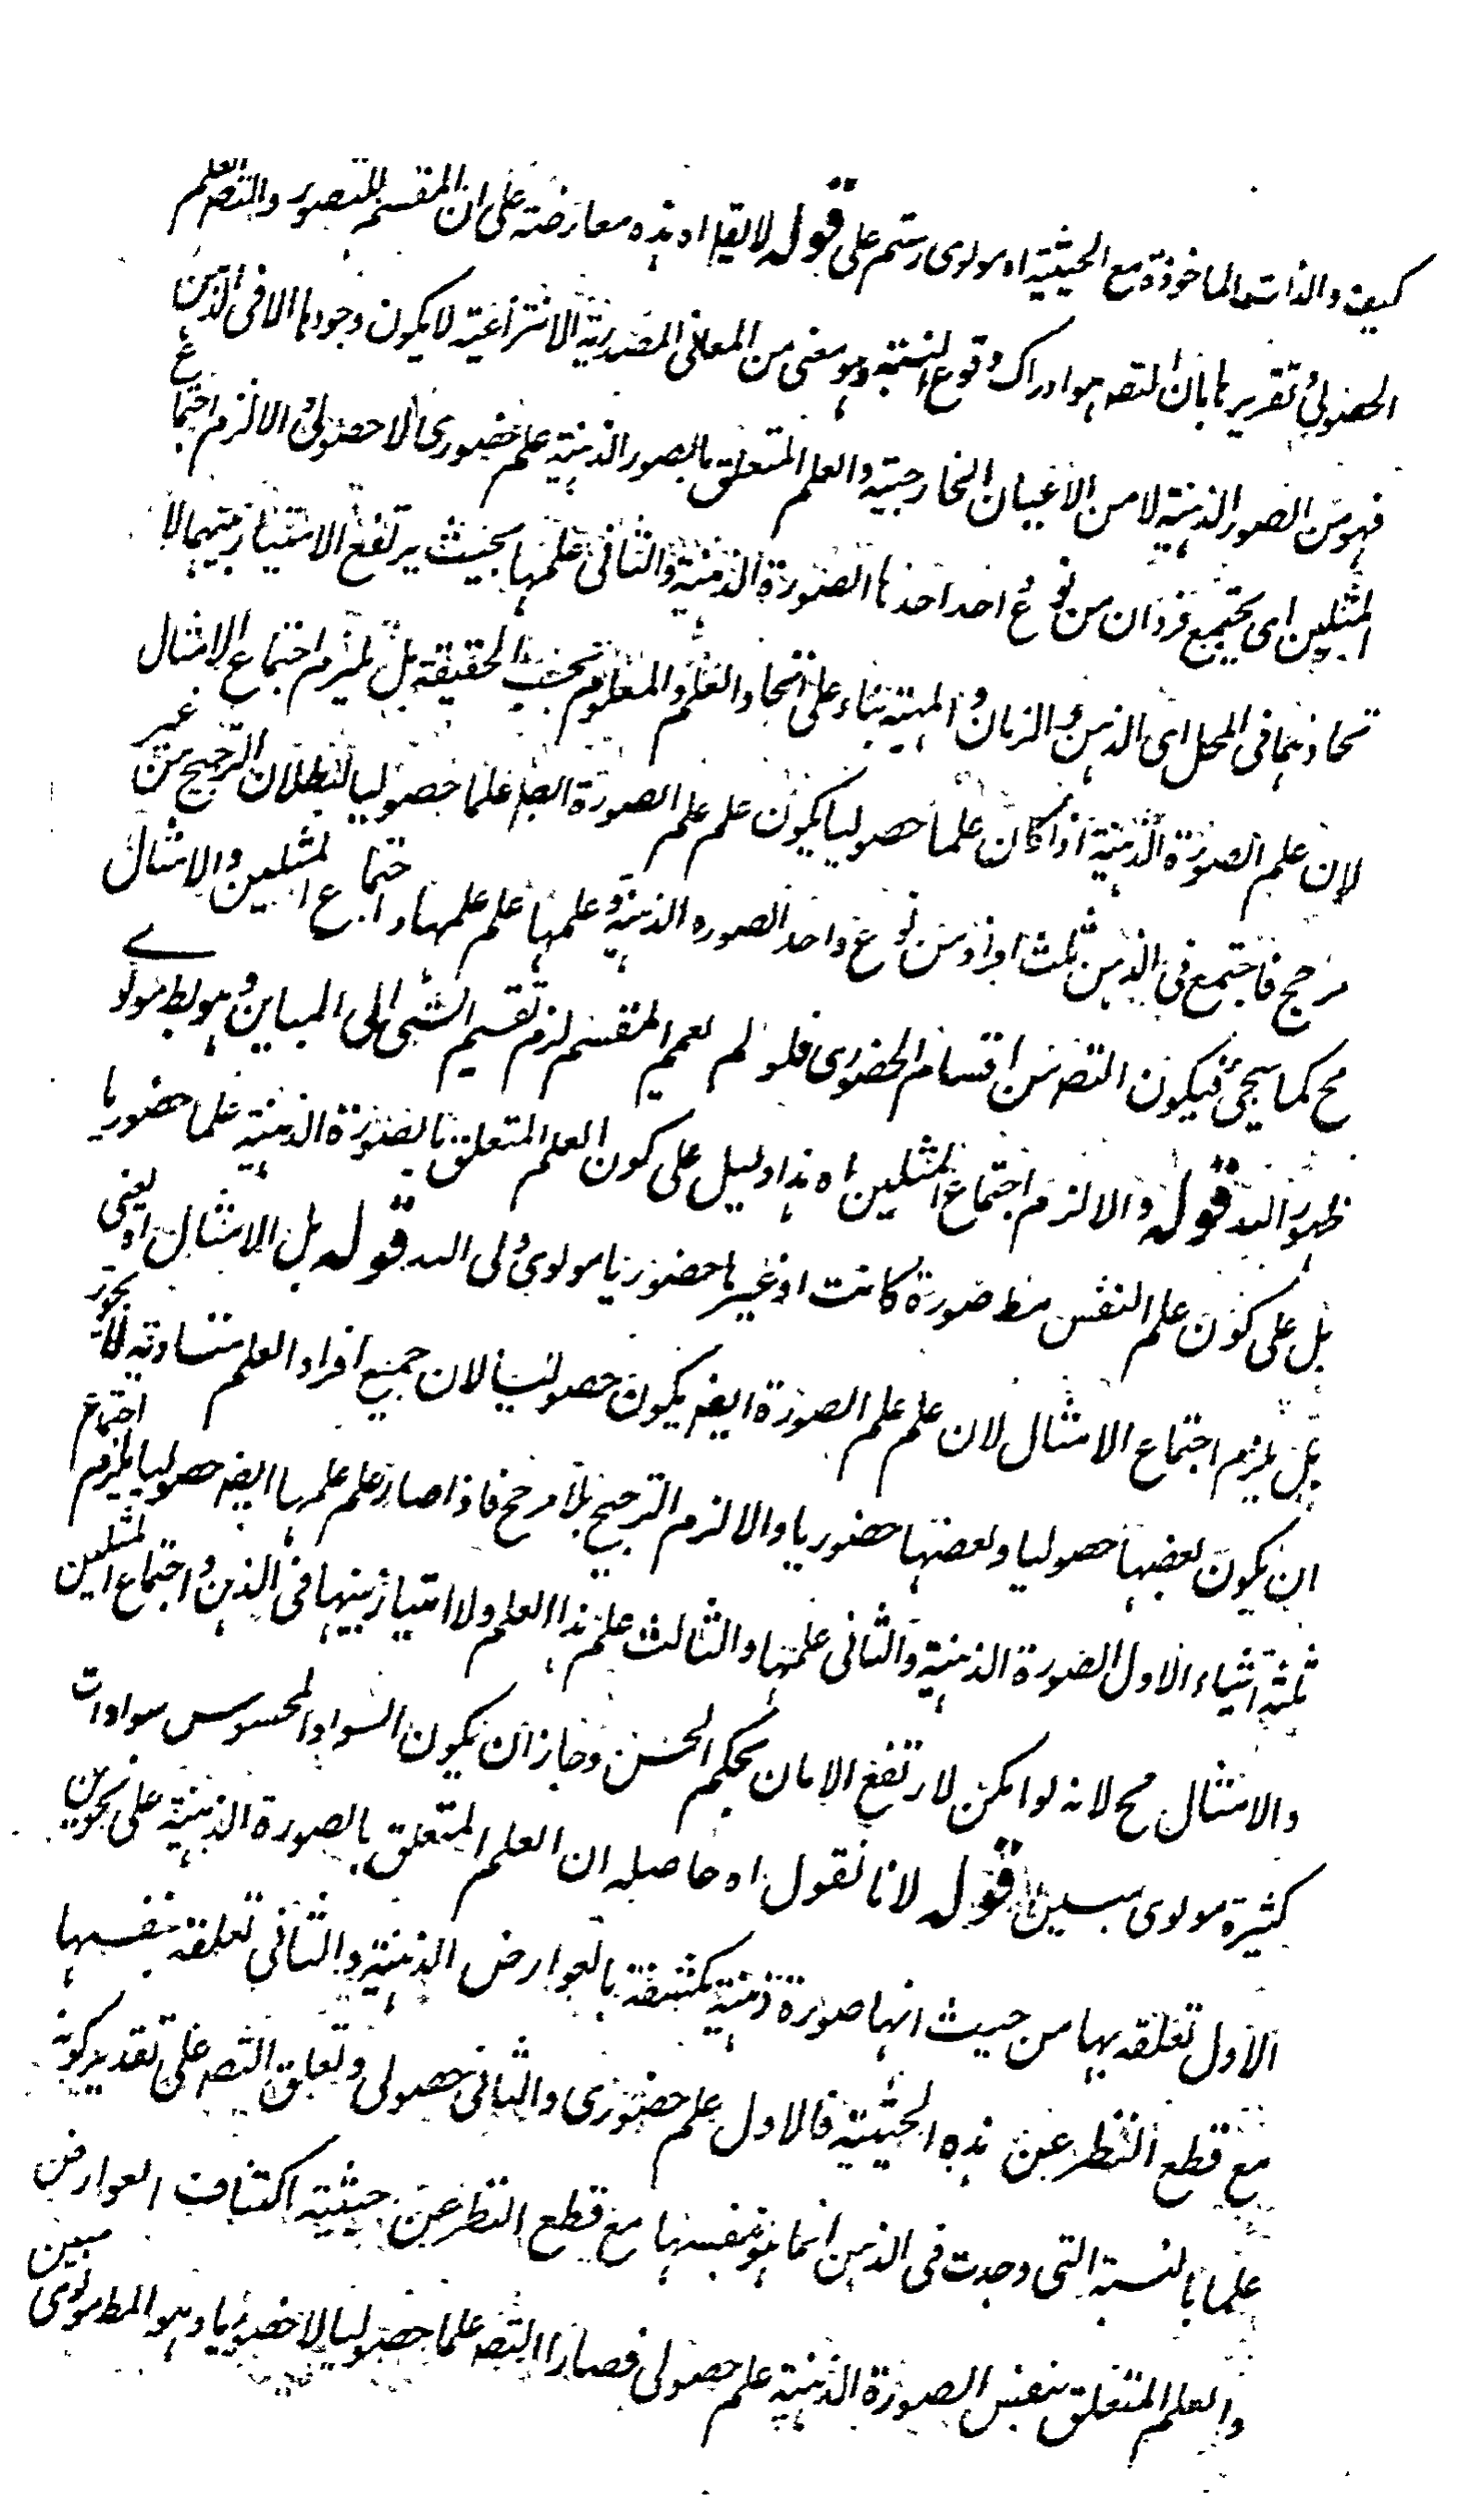 كيف والذات الماخوذة مع الحيثية اه مولوى رستم على قوله لا يقال اه هذه معارضة على ان المقسم للتصور والتصد العلم
الحصولى تقريرها بان التصد هو ادراك وقوع النسبة وهو معنى من المعانى المصدرية الانتزاعية لا يكون وجودها الا فى الذهن
فهو من الصور الذهنية لا من الاعيان الخارجية والعلم المتعلق بالصور الذهنية علم حضورى لا حصولى والا لزم اجتماع
المثلين اى يجتمع فردان من نوع احد احدها الصورة الذهنية والثانى علمها بحيث يرتفع الامتياز بينهما لا
تحادهما فى المحل اى الذهن والزمان والمهية بناء على اتحاد العلم والمعلوم بحسب الحقيقة بل يلزم اجتماع الامثال
لان علم الصورة الذهنية اذا كان علما حصوليا يكون علم علم الصورة ايضا علما حصوليا لبطلان الترجيح من غير
مرجح فاجتمع فى الذهن ثلث افراد من نوع واحد الصورة الذهنية وعلمها علم علمها واجتماع المثلين والامثال
مح كما سيجئ فيكون التصد من اقسام الحضورى فلو لم يعمم المقسم لزم تقسيم الشئ الى المباين وهو بط مولوے
ظهور الله قوله والا لزم اجتماع المثلين اه هذا دليل على كون العلم المتعلق بالصورة الذهنية علما حضوريا
بل على كون علم النفس مط صورة كانت او غيرها حضوريا مولوى ولى الله قوله بل الامثال اه يعنى
بل يلزم اجتماع الامثال لان علم علم الصورة ايضه يكون حصوليا لان جميع افراد العلم متساوية لا يجوز
ان يكون بعضها حصوليا وبعضها حضوريا والا لزم الترجيح بلا مرجح فاذا صار علم علمها ايضه حصوليا يلزم اجتماع
ثلثة اشياء الاول الصورة الذهنية والثانى علمها والثالث علم هذا العلم ولا امتياز بينها فى الذهن واجتماع المثلين
والامثال مح لانه لو امكن لارتفع الامان بحكم الحس وجاز ان يكون السواد المحسوس سوادات
كثيرة مولوى مبين قوله لانا نقول اه حاصله ان العلم المتعلق بالصورة الذهنية على نحوين
الاول تعلقه بها من حيث انها صورة ذهنية مكتنفة بالعوارض الذهنية والثانى تعلقه بنفسها
مع قطع النظر عن هذه الحيثية فالاول علم حضورى والثانى حصولى وتعلق التصد على تقدير كونه
علما بالنسبة التى وجدت فى الذهن انما هو بنفسها مع قطع النظر عن حيثية اكتناف العوارض
والعلم المتعلق بنفس الصورة الذهنية علم حصولى فصار التصد علما حصوليا لا حضوريا وهو المط مولوى مبين